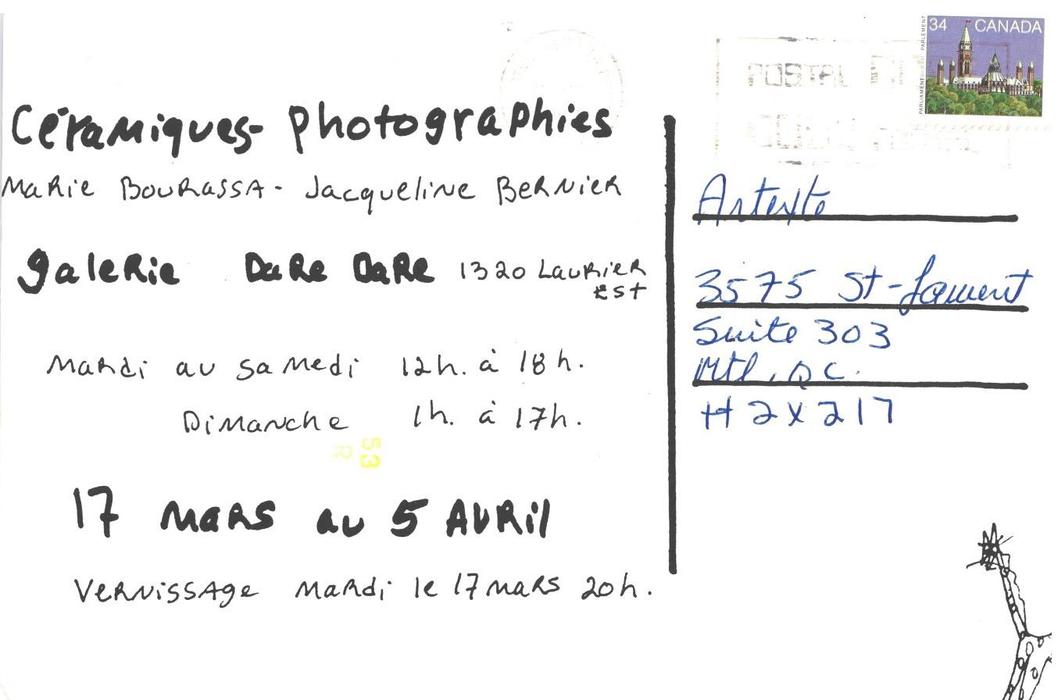 34 CANADA
PARLIAMENT PARLEMENT
POSTAL
Céramiques- photographies
Marie Bourassa - Jacqueline Bernier
galerie Dare Dare 1320 Laurier
est
Mardi au samedi 12h. à 18h.
Dimanche 1h. à 17h.
53
R
17 mars au 5 Avril
Vernissage mardi le 17 mars 20h.
Artexte
3575 St-Laurent
Suite 303
Mtl, QC.
H2X 2T7